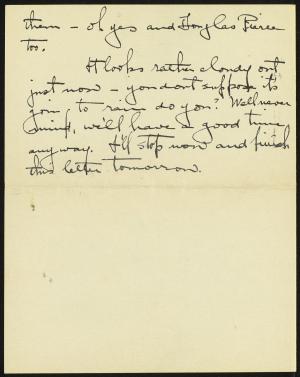 them – oh yes and Douglas Pierce
too.
It looks rather cloudy out
just now – you dont suppose its
goin to rain do you? Well never
mind, we'll have a good time
anyway. I'll stop now and finish
this letter tomorrow.